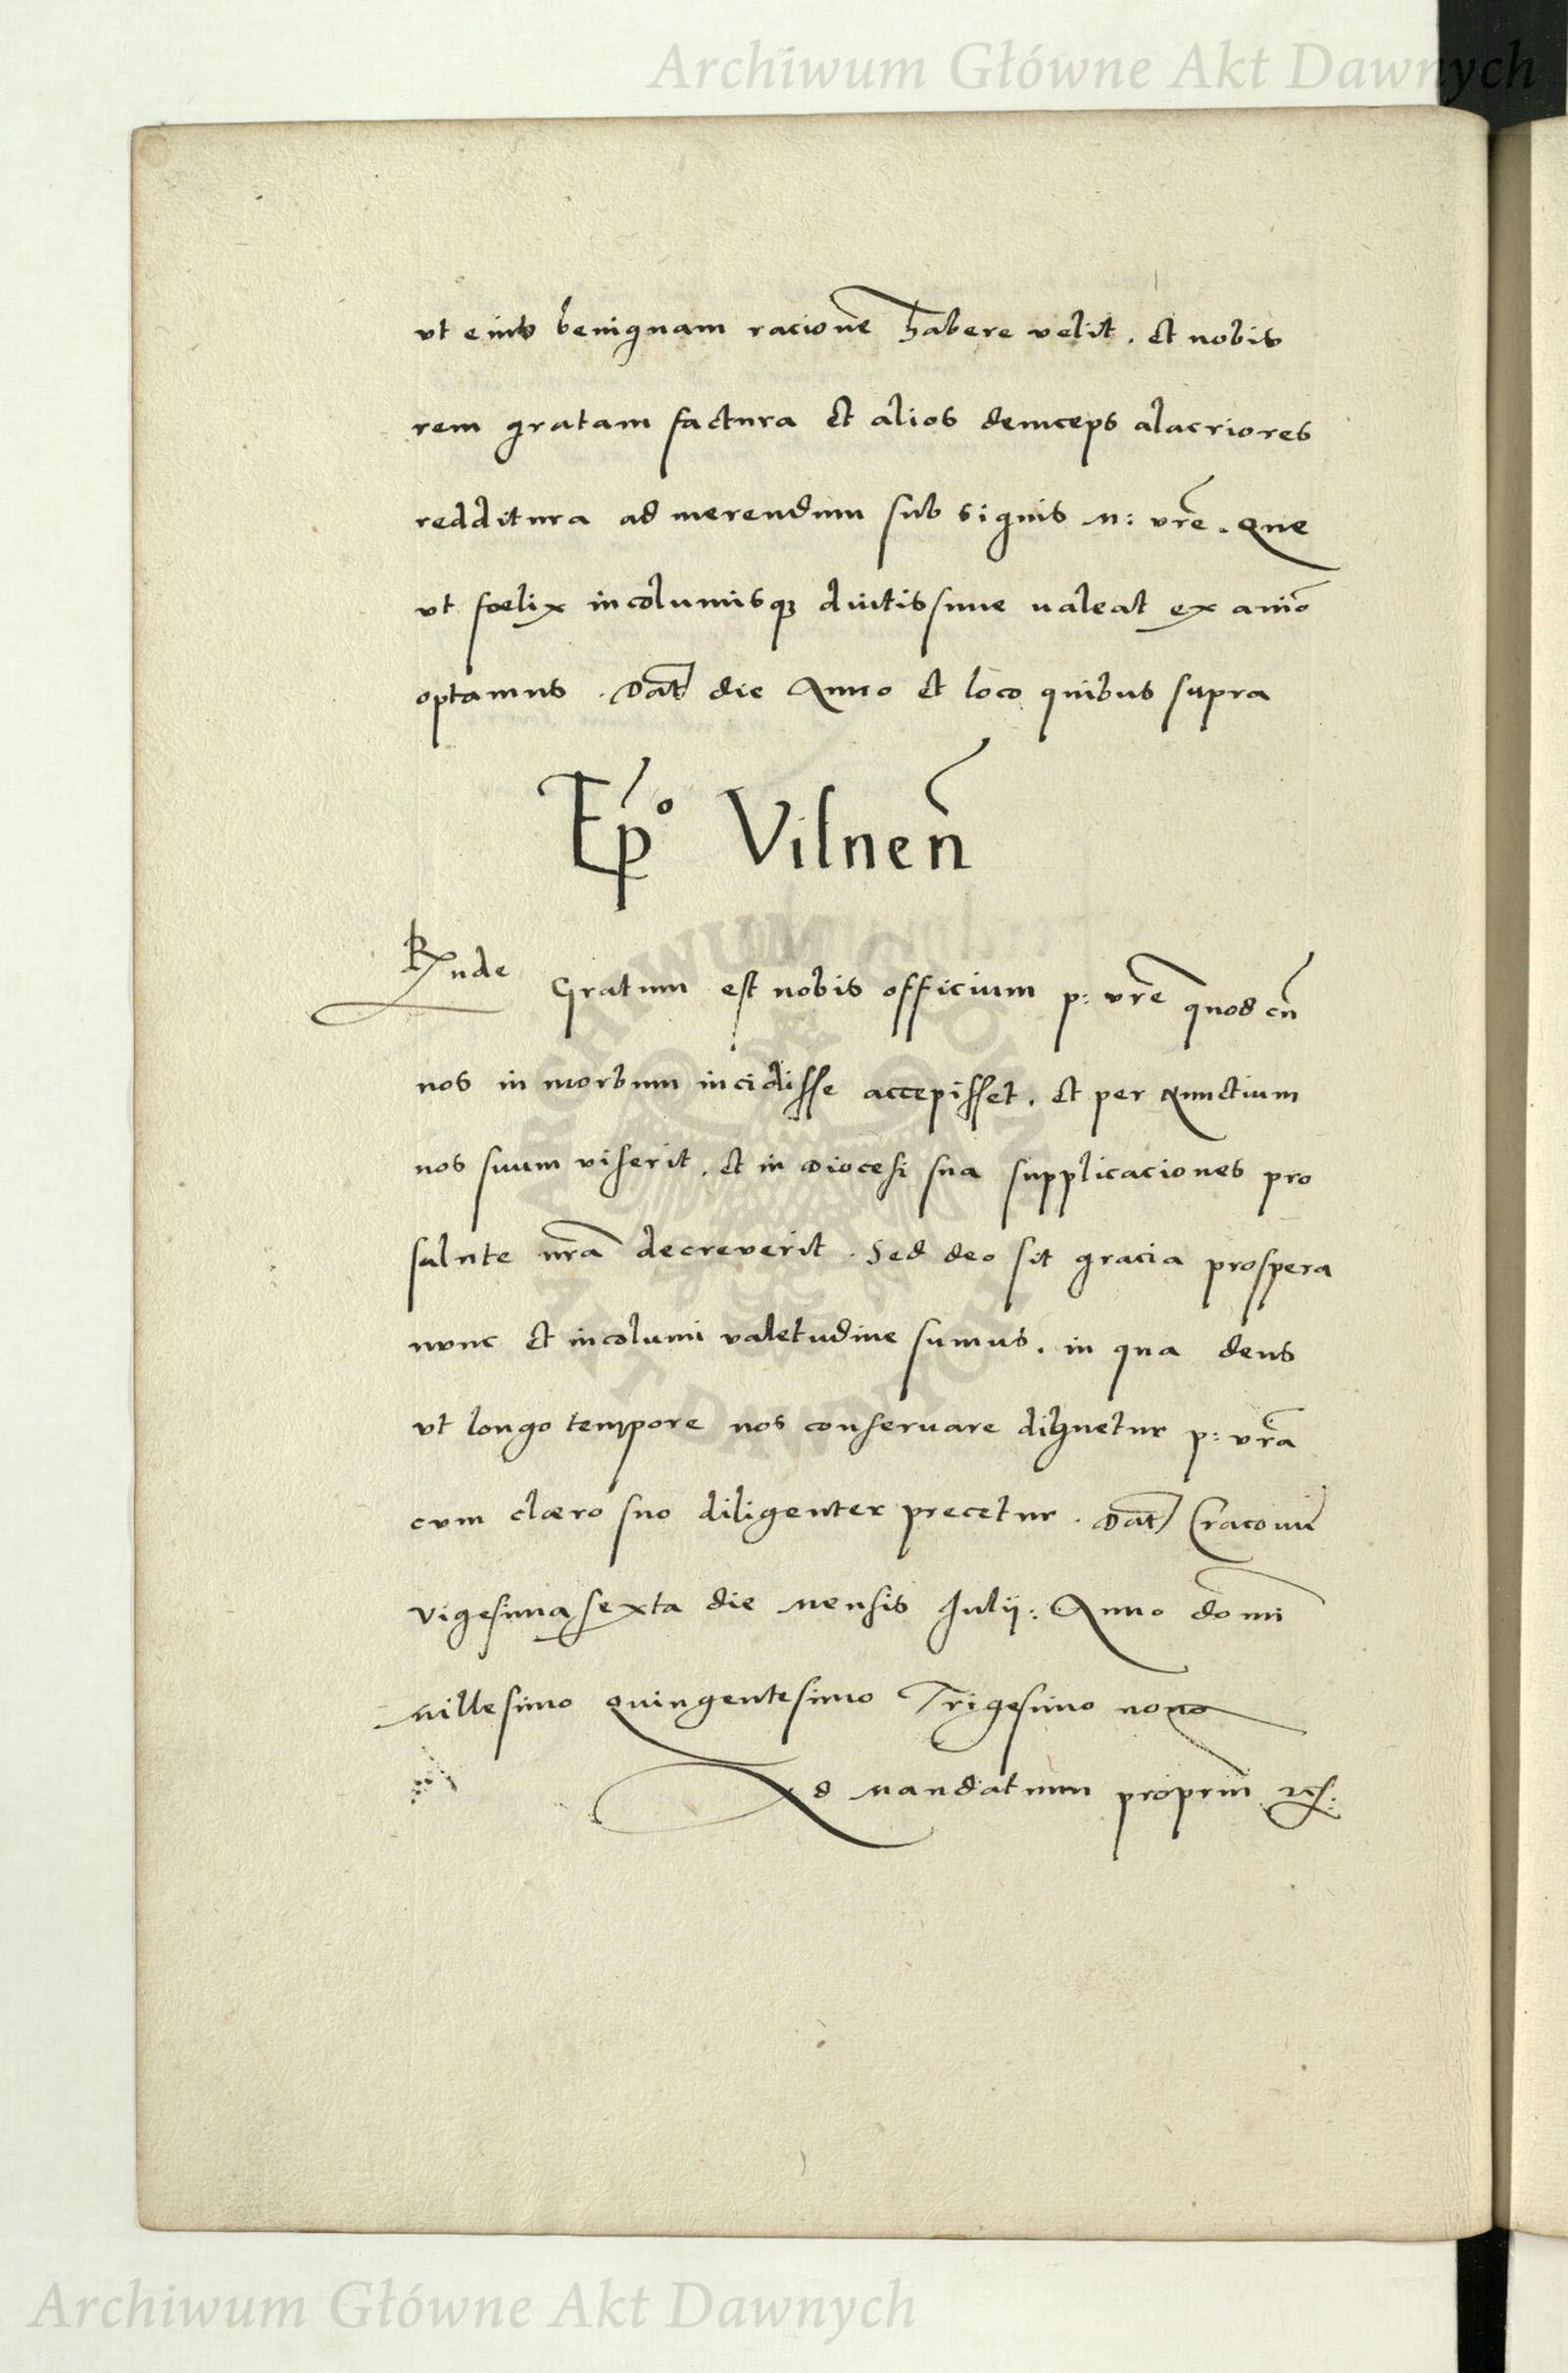 Archiwum Główne Akt Dawnych
vt eius benignam racionē habere velit. Et nobis
rem gratam factura Et alios deinceps alacriores
redditura ad merendum sub signis M: vrē. Que
vt foelix incolumisqꝫ diutissime valeat ex aniō
optamus. Dat̄ die Anno Et loco quibus supra
Ep̄o Vilnen̄
Rnde Gratum est nobis officium p: vrē quod cū
nos in morbum incidisse accepisset. Et per Nunctium
nos suum viserit. Et in Diocesi sua supplicaciones pro
salute nrā decreverit. Sed deo sit gracia prospera
nunc Et incolumi valetudine sumus. in qua deus
vt longo tempore nos conservare dignetur p: vrā
cum clæro suo diligenter precetur. Dat̄ Cracovi
Vigesima sexta die Mensis Julij: Anno domi
Millesimo Quingentesimo Trigesimo nono
Ad Mandatum propriū
ARCHIWUM GŁÓWNE
AKT DAWNYCH
Archiwum Główne Akt Dawnych